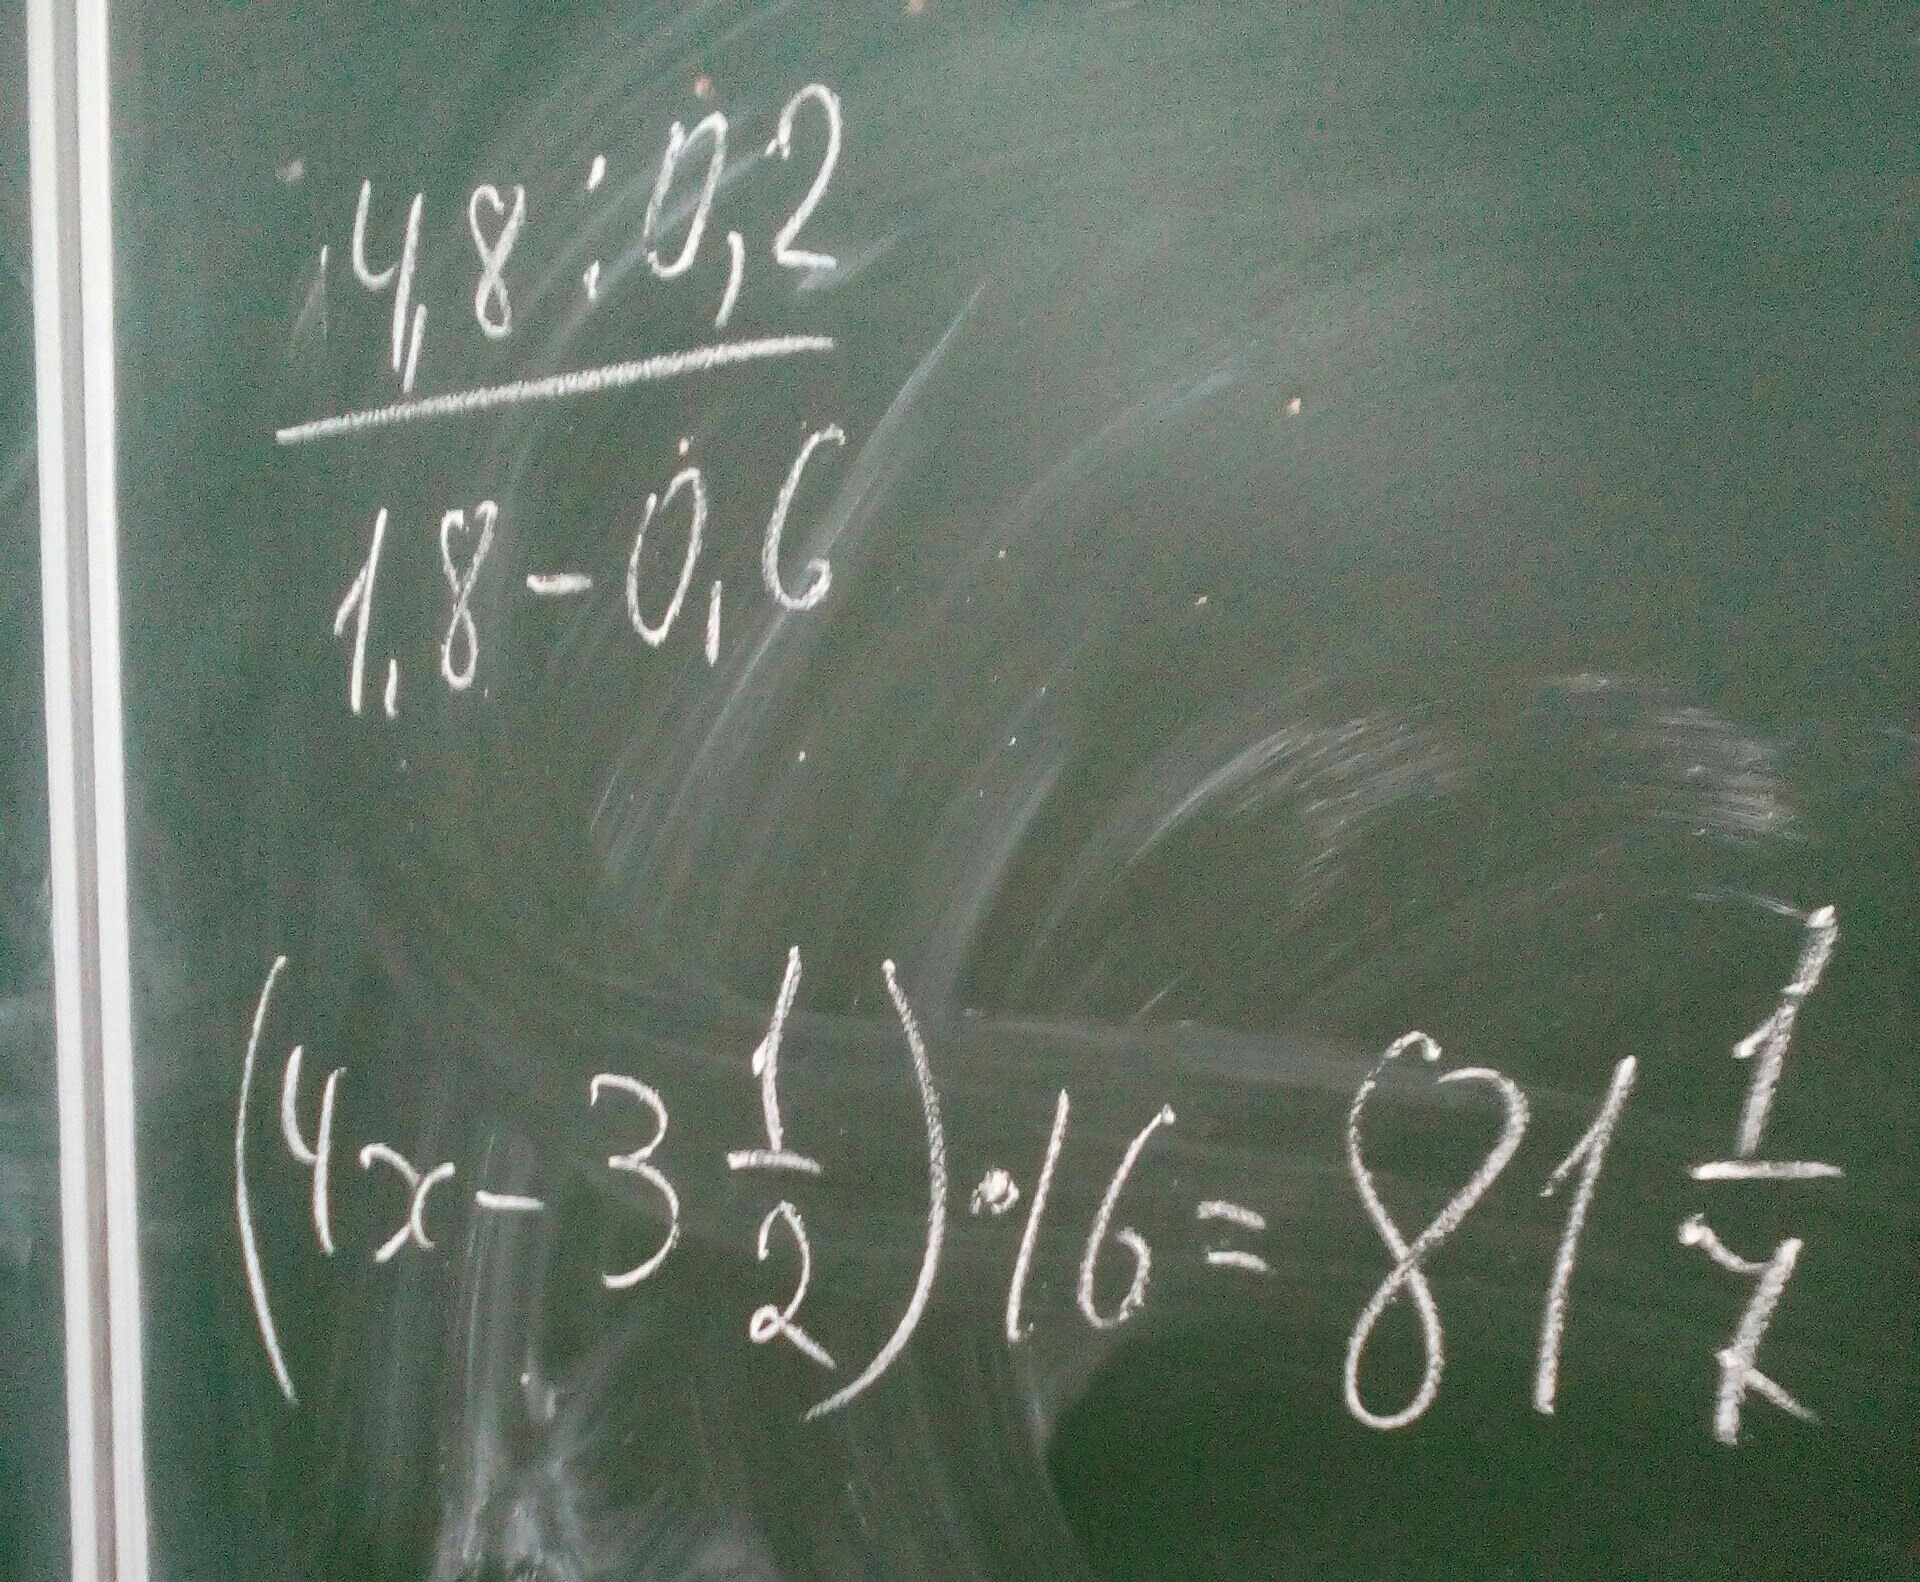 4,8 : 0,2
1,8 - 0,6
(4x - 3 1/2) · 16 = 81 1/4